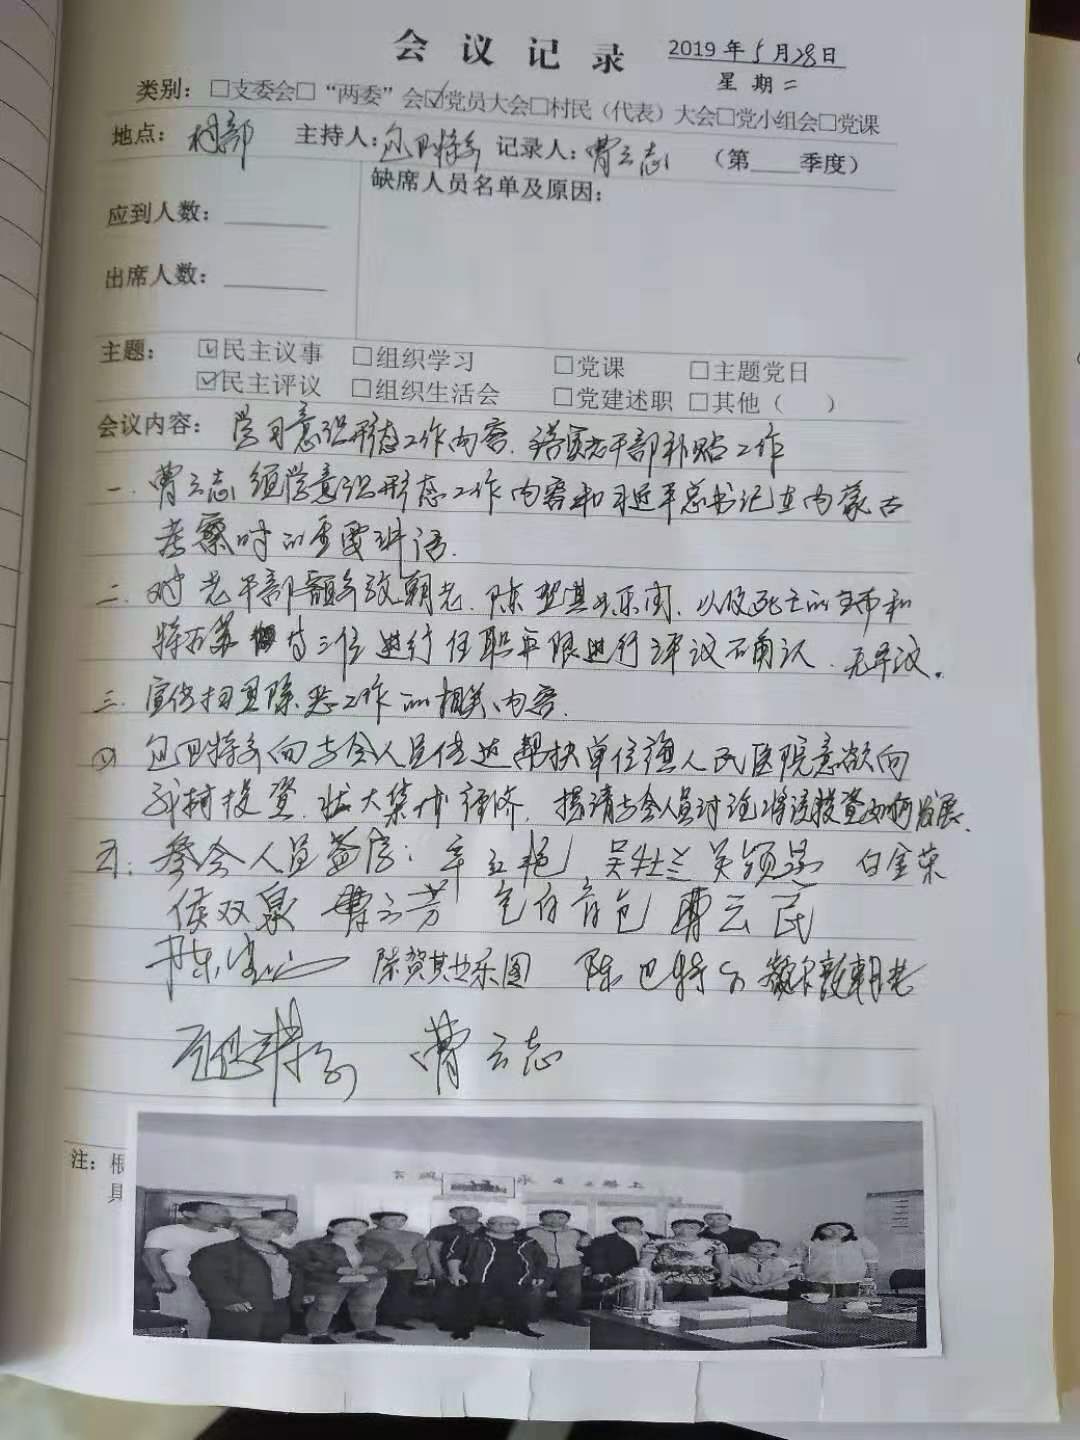 会议记录 2019年5月28日
星期二
类别：□支委会□“两委”会☑党员大会□村民（代表）大会□党小组会□党课
地点：村部 主持人：包巴特尔 记录人：曹云志 （第____季度）
缺席人员名单及原因：
应到人数：
出席人数：
主题： ☑民主议事 □组织学习 □党课 □主题党日
☑民主评议 □组织生活会 □党建述职 □其他（ ）
会议内容：学习意识形态工作内容、落实老干部补贴工作
一、曹云志领学意识形态工作内容和习近平总书记在内蒙古
考察时的重要讲话.
二、对老干部额尔敦朝老、陈贺其乐图、以及死亡的 和
等三位进行任职年限进行评议而确认、无异议。
三、宣传扫黑除恶工作的相关内容.
四 包巴特尔向与会人员传达帮扶单位旗人民医院意欲向
我村投资、壮大集体经济、提请与会人员讨论将该投资如何发展.
五：参会人员签字： 辛红艳 吴牡兰 吴领弟 白金荣
侯双泉 曹云芳 包白音包 曹云民
陈 陈贺其乐图 陈巴特尔 额尔敦朝老
包巴特尔 曹云志
注：根
具